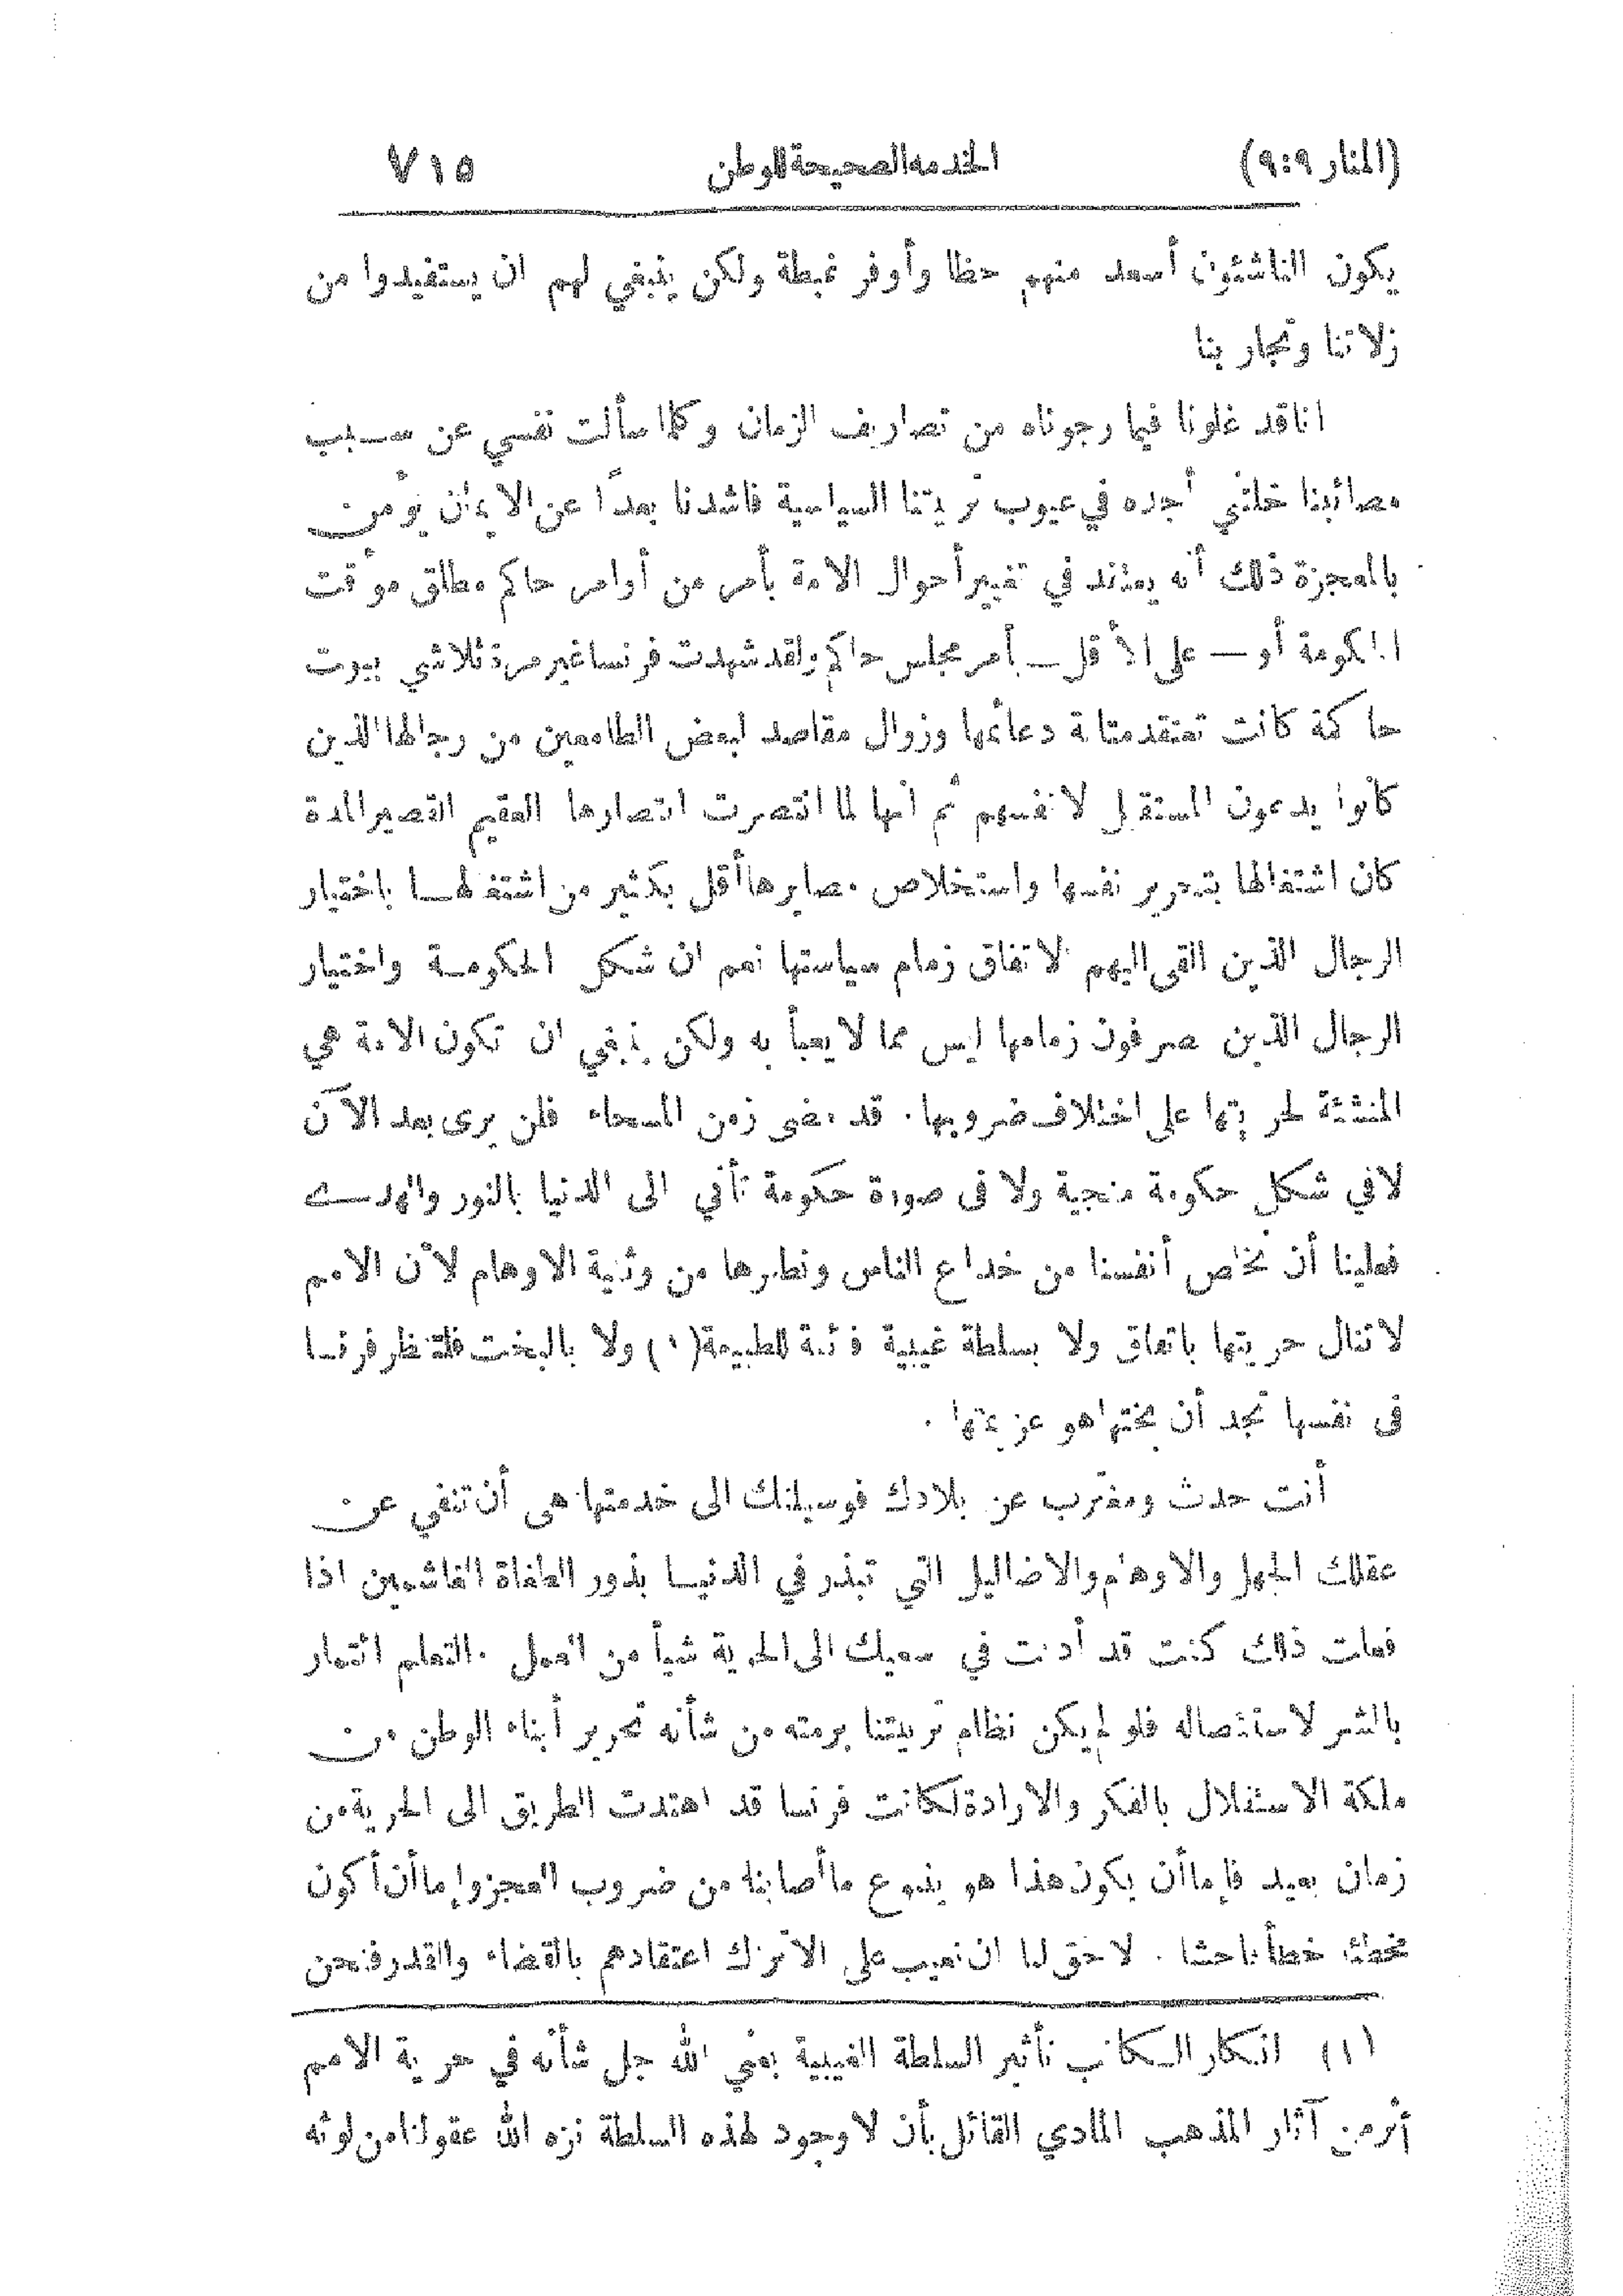 (المنار ٩:٩) الخدمة الصحيحة للوطن ٧١٥
يكون الناشئون أسعد منهم حظا وأوفر غبطة ولكن ينبغي لهم ان يستفيدوا من
زلاتنا وتجاربنا
اننا قد غلونا فيما رجوناه من تصاريف الزمان وكلما سألت نفسي عن سبب
مصائبنا خلتني أجده في عيوب تربيتنا السياسية فاشدنا بعدًا عن الايمان يؤمن
بالمعجزة ذلك أنه يعتقد في تغيير أحوال الامة بأمر من أوامر حاكم مطلق موقت
الحكومة أو — على الأقل — أمر مجلس حاكم ولقد شهدت فرنسا غير مرة تلاشي بيوت
حاكمة كانت تعتقد متانة دعائمها وزوال مقاصد لبعض الطامعين من رجالها الذين
كانوا يدعون المستقبل لانفسهم ثم انها لما انتصرت انتصارها العقيم القصير المدة
كان اشتغالها بتحرير نفسها واستخلاص مصايرها أقل بكثير من اشتغالها باختيار
الرجال الذين القى اليهم الاتفاق زمام سياستها نعم ان شكل الحكومة واختيار
الرجال الذين يصرفون زمامها ليس مما لا يعبأ به ولكن ينبغي ان تكون الامة هي
المنشئة لحريتها على اختلاف ضروبها . قد مضى زمن المسحاء فلن يرى بعد الآن
لافي شكل حكومة منجية ولا في صورة حكومة تأتي الى الدنيا بالنور والهدى
فعلينا أن نخلص أنفسنا من خداع الناس ونطهرها من وثنية الاوهام لأن الامم
لا تنال حريتها باتفاق ولا بسلطة غيبية فائقة للطبيعة (١) ولا بالبخت فلتنظر فرنسا
في نفسها تجد أن بختها هو عزيمتها .
أنت حدث ومغترب عن بلادك فوسيلتك الى خدمتها هي أن تنفي عن
عقلك الجهل والاوهام والاضاليل التي تبذر في الدنيا بذور الطغاة الغاشمين اذا
فعلت ذلك كنت قد أدنت في سعيك الى الحرية شيأ من العمل . التعلم ائتمار
بالشر لاستئصاله فلو لم يكن نظام تربيتنا برمته من شأنه تحرير أبناء الوطن من
ملكة الاستقلال بالفكر والارادة لكانت فرنسا قد اهتدت الطريق الى الحرية من
زمان بعيد فإما أن يكون هذا هو ينبوع ما أصابنا من ضروب العجز وإما أن أكون
مخطئا خطأ فاحشا . لا حق لنا ان نعيب على الاتراك اعتقادهم بالقضاء والقدر فنحن
(١) انكار الكاتب تأثير السلطة الغيبية يعني الله جل شأنه في حرية الامم
أثر من آثار المذهب المادي القائل بأن لا وجود لهذه السلطة نزه الله عقولنا من لوثه